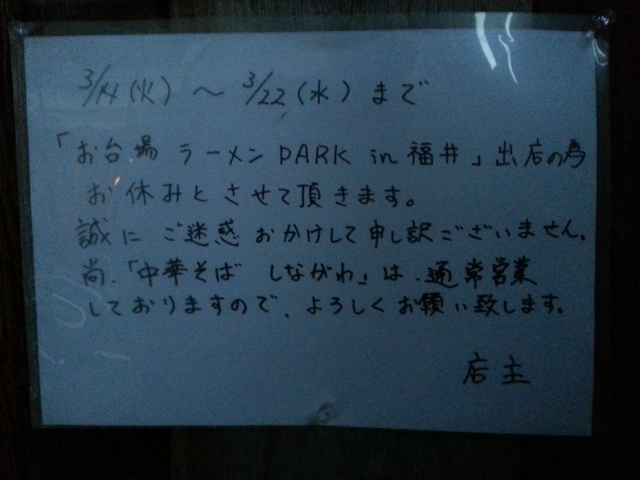 3/14(火)～3/22(水)まで
「お台場 ラーメンPARK in 福井」出店の為
お休みとさせて頂きます。
誠に ご迷惑おかけして申し訳ございません。
尚.「中華そば しながわ」は.通常営業
しておりますので、よろしくお願い致します。
店主